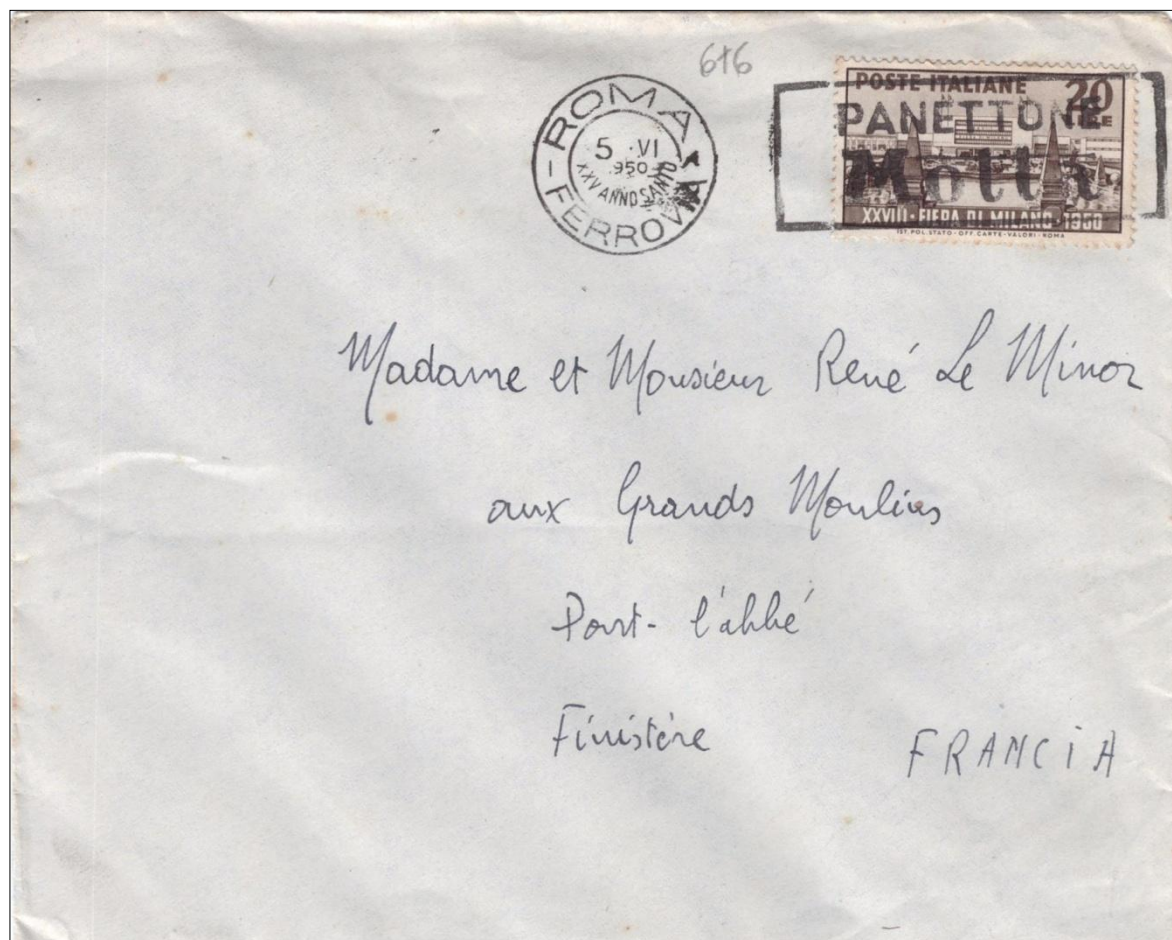 676
ROMA
FERROVIA
5 VI
950
XXV ANNO SANTO
POSTE ITALIANE
20
LIRE
PANETTONE
Motta
XXVIII · FIERA DI MILANO · 1950
IST. POL. STATO - OFF. CARTE - VALORI - ROMA
Madame et Monsieur René Le Minor
aux Grands Moulins
Pont-l'abbé
Finistère
FRANCIA